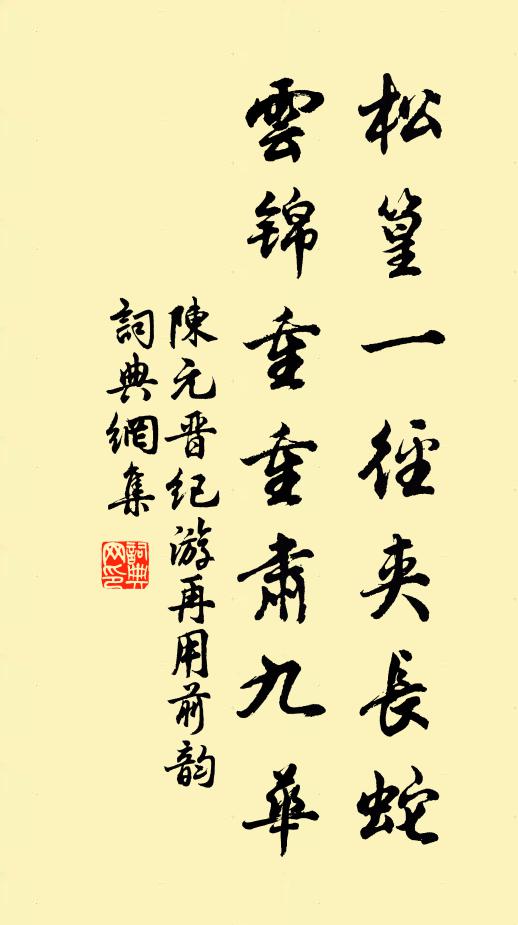 松篁一徑夾長蛇
雲錦重重肅九華
陳元晋紀游再用前韵
詞典網集
詞典
网印